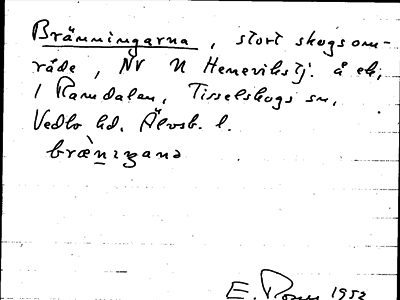 Bränningarna, stort skogsom-
råde, NV N Henrikstj. å ek,
i Ramdalen, Tisselskogs sn,
Vedbo hd. Älvsb. l.
bræ̀nıgana
E. 1952